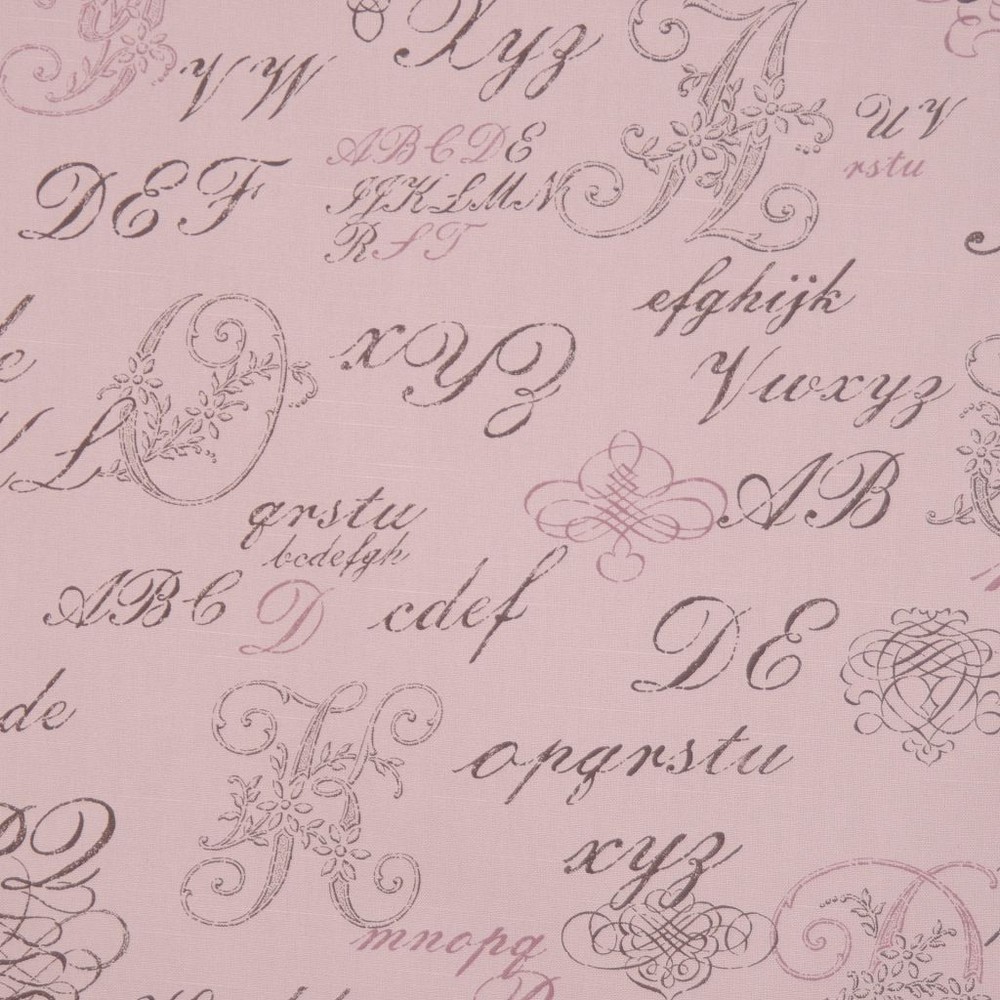 Xyz
A
U V
rstu
ABCDE
IJKLMN
RST
DEF
efghijk
O
XYZ
Vwxyz
L
AB
qrstu
bcdefgh
ABC D
cdef
DE
de
K
opqrstu
PQ
xyz
mnopq